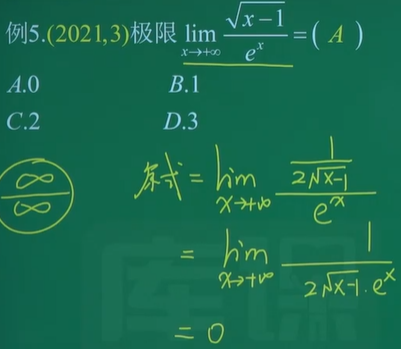 例5.(2021,3)极限 lim x→+∞ √(x−1) / e^x =( A )
A.0 B.1
C.2 D.3
∞/∞
原式 = lim x→+∞ (1 / 2√(x−1)) / e^x
= lim x→+∞ 1 / (2√(x−1)·e^x)
= 0
库课